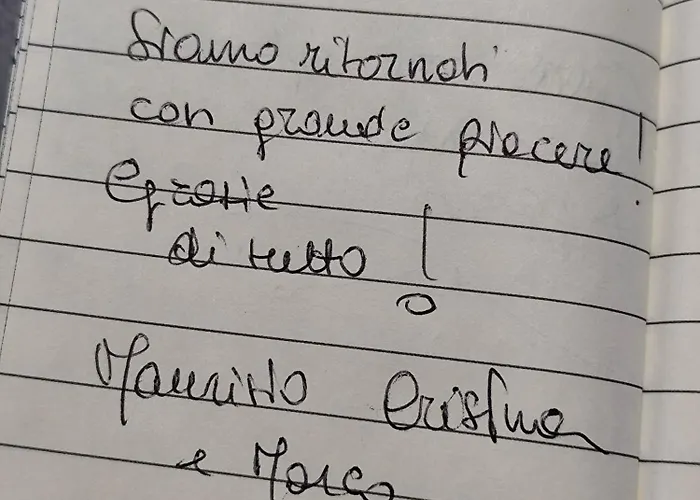 Siamo ritornati
con grande piacere!
E grazie
di tutto!
Maurizio Cristina
e Marco